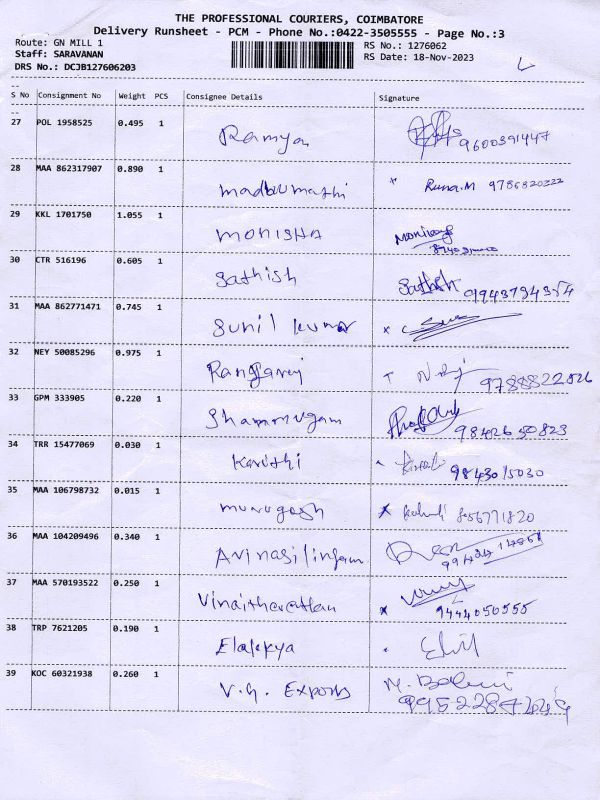 THE PROFESSIONAL COURIERS, COIMBATORE
Delivery Runsheet - PCM - Phone No.:0422-3505555 - Page No.:3
Route: GN MILL 1
RS No.: 1276062
Staff: SARAVANAN
RS Date: 18-Nov-2023
DRS No.: DCJB127606203
S No Consignment No Weight PCS Consignee Details Signature
27 POL 1958525 0.495 1 Ramya 9600391447
28 MAA 862317907 0.890 1 madhumathi
29 KKL 1701750 1.055 1 MONISHA
30 CTR 516196 0.605 1 Sathish Sathish 9943794354
31 MAA 862771471 0.745 1 Sunil kumar
32 NEY 50085296 0.975 1 Rangaraj 9788822526
33 GPM 333905 0.220 1 Shanmugam 9842650823
34 TRR 15477069 0.030 1 Kavithi 9843015030
35 MAA 106798732 0.015 1 murugesh 8056771820
36 MAA 104209496 0.340 1 Avinasilingam
37 MAA 570193522 0.250 1 9444050555
38 TRP 7621205 0.190 1
39 KOC 60321938 0.260 1 V.G. Exports